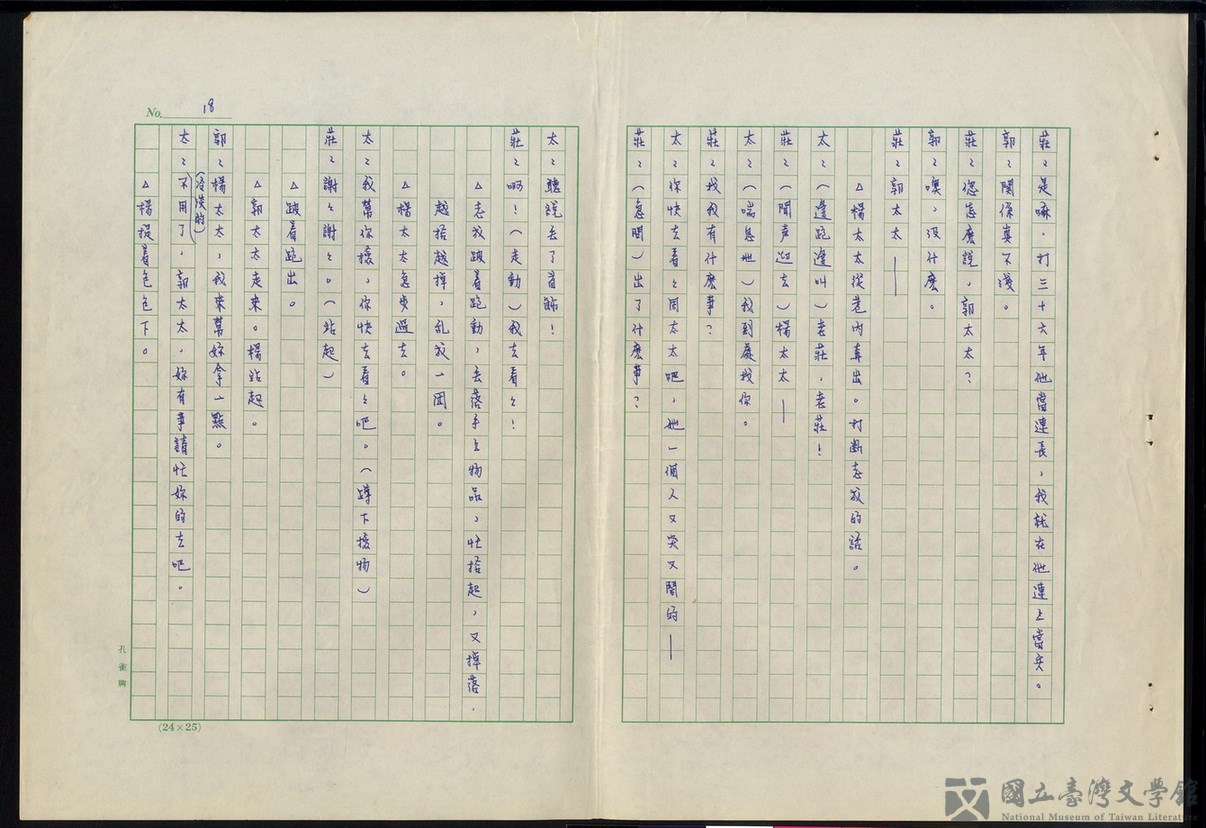 No. 18
莊:是啊，打三十六年他當連長，我就在他連上當兵。
郭:關係真不淺。
莊:您怎麼說，郭太太？
郭:噢，沒什麼。
莊:郭太太——
△楊太太從巷內奔出。打斷志教的話。
太:(邊跑邊叫)老莊，老莊！
莊:(聞声迎去)楊太太——
太:(喘息地)我到處找你。
莊:找我有什麼事？
太:你快去看看周太太吧，她一個人又哭又鬧的——
莊:(急問)出了什麼事？
太:聽說丟了首飾！
莊:啊！(走動)我去看看！
△志教跛着跑動，丟落手上物品，忙拾起，又掉落，
越拾越掉，亂成一團。
△楊太太急步過去。
太:我幫你撿，你快去看看吧。(蹲下撿物)
莊:謝謝謝謝。(站起)
△跛着跑出。
△郭太太走來。楊站起。
郭:楊太太，我來幫妳拿一點。
太:(冷淡的)不用了，郭太太，妳有事請忙妳的去吧。
△楊提着包包下。
孔雀牌
(24×25)
國立臺灣文學館
National Museum of Taiwan Literature